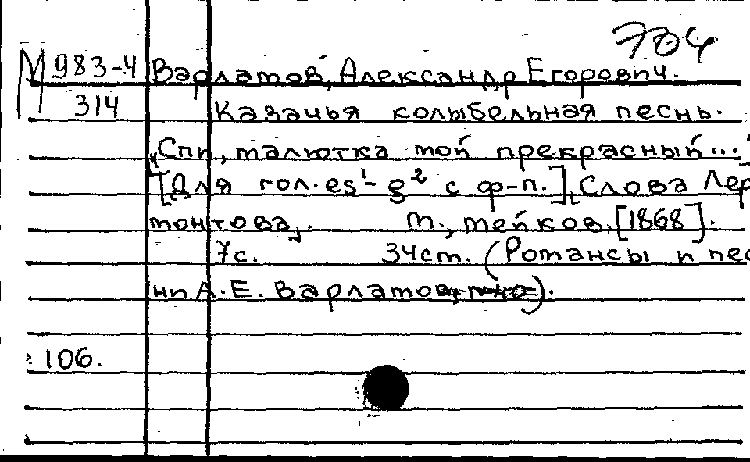 704
М 983-4 Варламов, Александр Егорович.
314 Казачья колыбельная песнь.
"Спи, малютка мой прекрасный..."
[Для гол. es¹-g² с ф-п.] [Слова Лер
монтова].     М., Мейков, [1868].
7с.     34см. (Романсы и пес
ни А.Е. Варламова).
106.